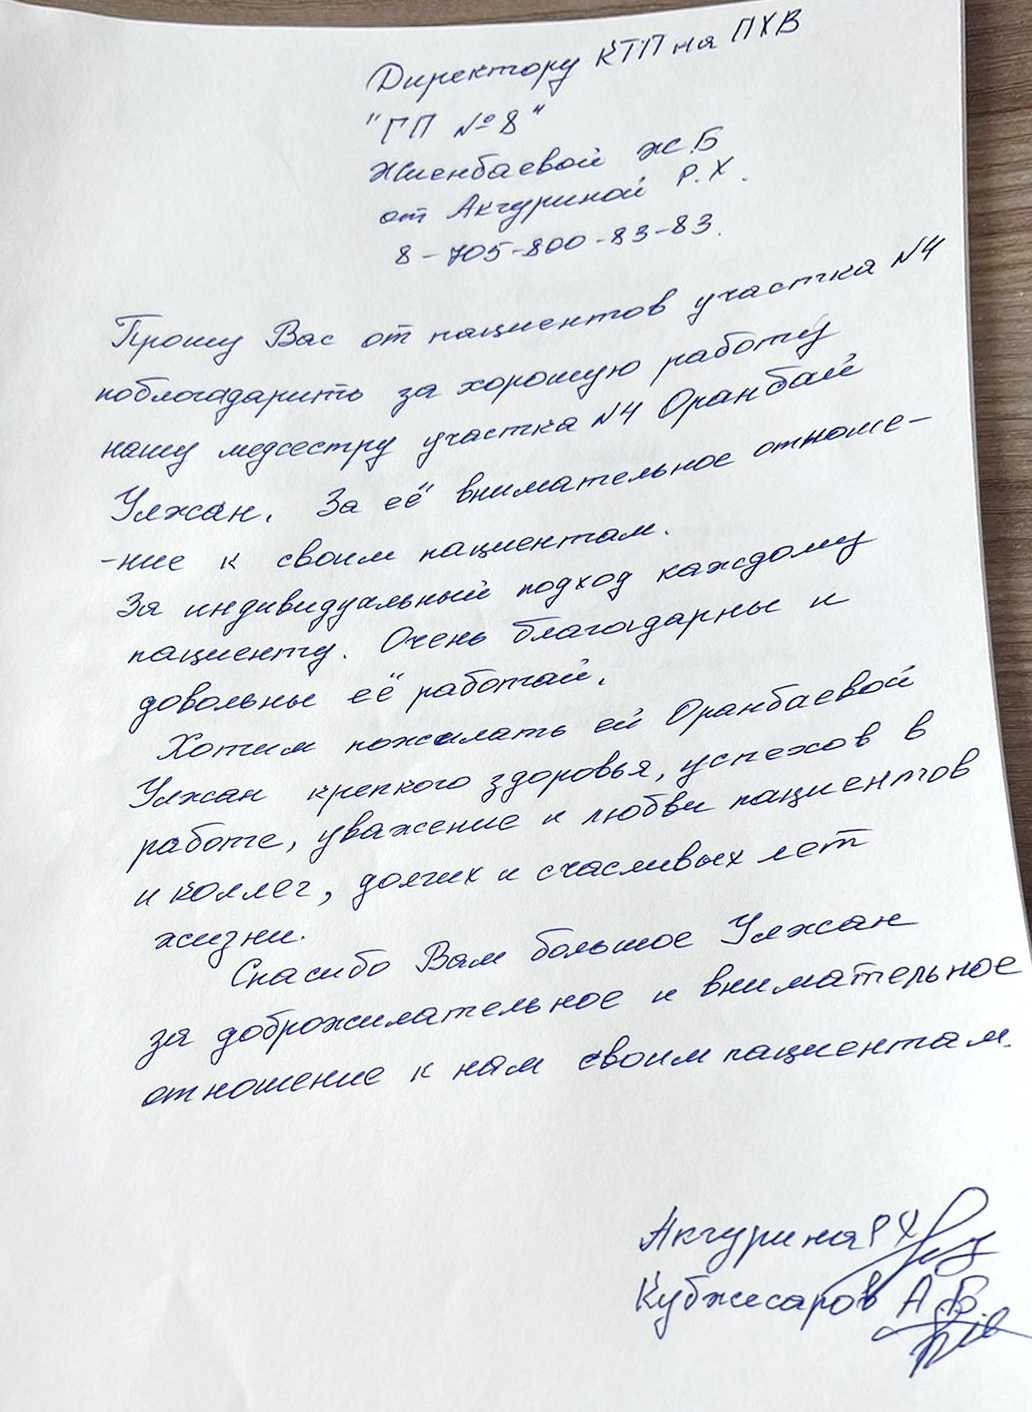 Директору КТП на ПХВ
"ГП №8"
Жиенбаевой Ж.Б
от Акчуриной Р.Х.
8-705-800-83-83.
Прошу Вас от пациентов участка №4
поблогадарить за хорошую работу
нашу медсестру участка №4 Оранбай
Улжан. За её внимательное отноше-
-ние к своим пациентам.
За индивидуальный подход каждому
пациенту. Очень благадарны и
довольны её работай.
Хотим пожелать ей Оранбаевой
Улжан крепкого здоровья, успехов в
работе, уважение и любви пациентов
и коллег, долгих и счасливых лет
жизни.
Спасибо Вам большое Улжан
за доброжилательное и внимательное
отношение к нам своим пациентам.
Акчурина Р Х
А.В.